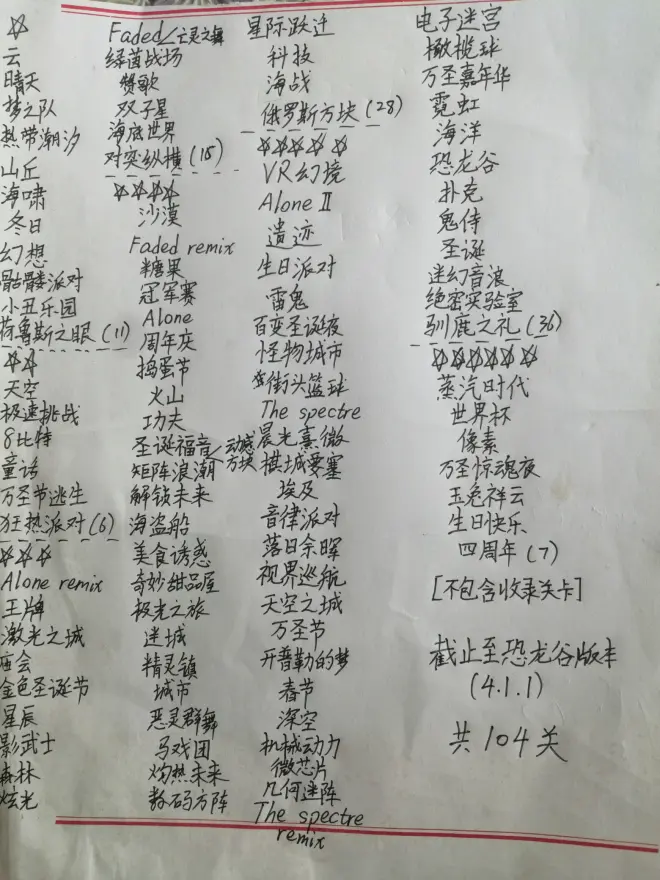 ☆
云
晴天
梦之队
热带潮汐
山丘
海啸
冬日
幻想
骷髅派对
小丑乐园
荷鲁斯之眼(11)
☆☆
天空
极速挑战
8比特
童话
万圣节逃生
狂热派对(6)
☆☆☆
Alone remix
王牌
激光之城
庙会
金色圣诞节
星辰
影武士
森林
炫光
Faded/亡灵之舞
绿茵战场
赞歌
双子星
海底世界
对突纵横(15)
☆☆☆☆
沙漠
Faded remix
糖果
冠军赛
Alone
周年庆
捣蛋节
火山
功夫
圣诞福音/动感方块
矩阵浪潮
解锁未来
海盗船
美食诱惑
奇妙甜品屋
极光之旅
迷城
精灵镇
城市
恶灵群舞
马戏团
灼热未来
数码方阵
星际跃迁
科技
海战
俄罗斯方块(28)
☆☆☆☆☆
VR幻境
Alone II
遗迹
生日派对
雷鬼
百变圣诞夜
怪物城市
街头篮球
The spectre
晨光熹微
棋城要塞
埃及
音律派对
落日余晖
视界巡航
天空之城
万圣节
开普勒的梦
春节
深空
机械动力
微芯片
几何迷阵
The spectre
remix
电子迷宫
橄榄球
万圣嘉年华
霓虹
海洋
恐龙谷
扑克
鬼侍
圣诞
迷幻音浪
绝密实验室
驯鹿之礼(36)
☆☆☆☆☆☆
蒸汽时代
世界杯
像素
万圣惊魂夜
玉兔祥云
生日快乐
四周年(7)
[不包含收录关卡]
截止至恐龙谷版本
(4.1.1)
共104关